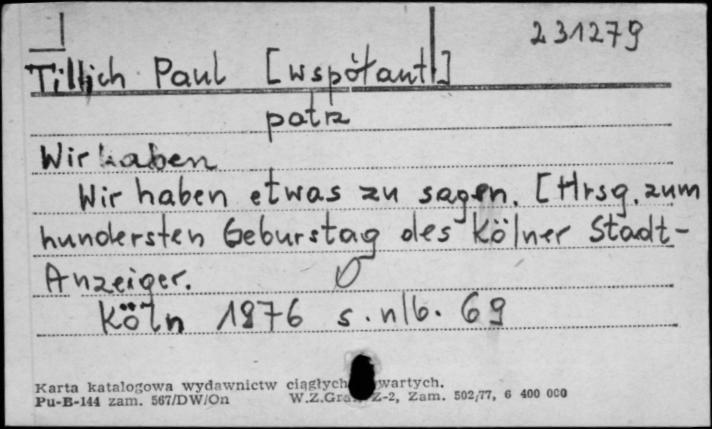 231279
Tillich Paul [współaut.]
patrz
Wir haben
Wir haben etwas zu sagen. [Hrsg. zum
hundersten Geburstag des Kölner Stadt-
Anzeiger.
Köln 1976 s. nlb. 69
Karta katalogowa wydawnictw ciągłych wartych.
Pu-B-144 zam. 567/DW/On W.Z.Graf. Z-2, Zam. 502/77, 6 400 000